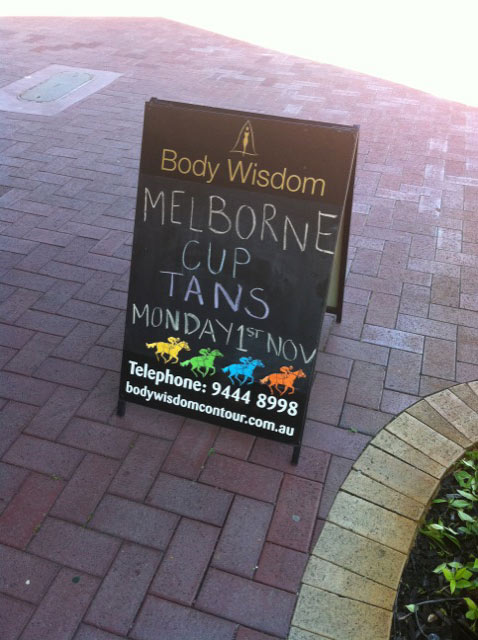 Body Wisdom
MELBORNE
CUP
TANS
MONDAY 1ST NOV
Telephone: 9444 8998
bodywisdomcontour.com.au